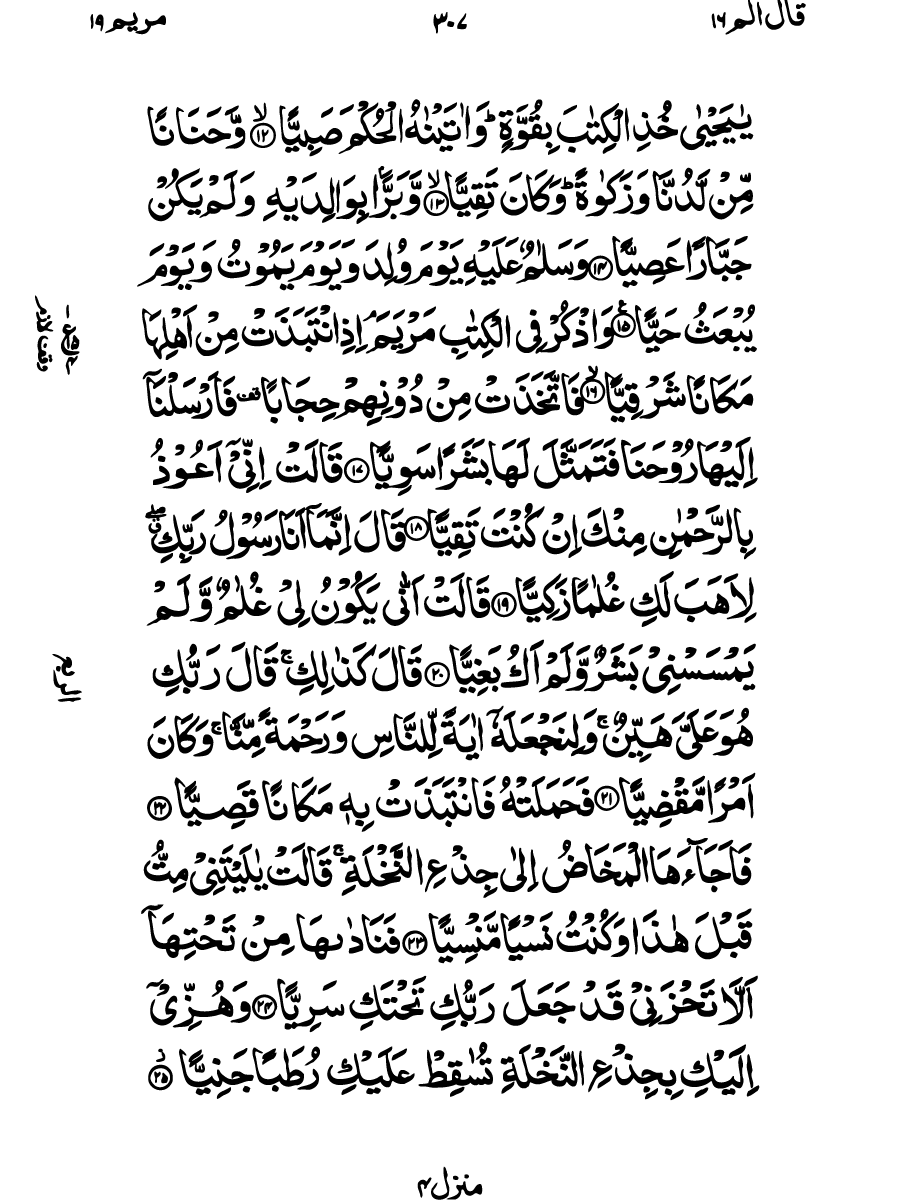 قال الم ١٦
٣٠٧
مريم ١٩
يٰيَحْيٰى خُذِ الْكِتٰبَ بِقُوَّةٍ ؕ وَاٰتَيْنٰهُ الْحُكْمَ صَبِيًّا ۙ‏﴿۱۲﴾ وَّحَنَانًا
مِّنْ لَّدُنَّا وَزَكٰوةً ؕ وَكَانَ تَقِيًّا ۙ‏﴿۱۳﴾ وَّبَرًّۢا بِوَالِدَيْهِ وَلَمْ يَكُنْ
جَبَّارًا عَصِيًّا ﴿۱۴﴾ وَسَلٰمٌ عَلَيْهِ يَوْمَ وُلِدَ وَيَوْمَ يَمُوْتُ وَيَوْمَ
يُبْعَثُ حَيًّا ﴿۱۵﴾ؑ وَاذْكُرْ فِى الْكِتٰبِ مَرْيَمَ ۘ اِذِ انْتَبَذَتْ مِنْ اَهْلِهَا
مَكَانًا شَرْقِيًّا ۙ‏﴿۱۶﴾ فَاتَّخَذَتْ مِنْ دُوْنِهِمْ حِجَابًا قف فَاَرْسَلْنَاۤ
اِلَيْهَا رُوْحَنَا فَتَمَثَّلَ لَهَا بَشَرًا سَوِيًّا ﴿۱۷﴾ قَالَتْ اِنِّىْۤ اَعُوْذُ
بِالرَّحْمٰنِ مِنْكَ اِنْ كُنْتَ تَقِيًّا ﴿۱۸﴾ قَالَ اِنَّمَاۤ اَنَا رَسُوْلُ رَبِّكِ ۖۗ
لِاَهَبَ لَكِ غُلٰمًا زَكِيًّا ﴿۱۹﴾ قَالَتْ اَنّٰى يَكُوْنُ لِىْ غُلٰمٌ وَّلَمْ
يَمْسَسْنِىْ بَشَرٌ وَّلَمْ اَكُ بَغِيًّا ﴿۲۰﴾ قَالَ كَذٰلِكِ ۚ قَالَ رَبُّكِ
هُوَ عَلَىَّ هَيِّنٌ ۚ وَلِنَجْعَلَهٗۤ اٰيَةً لِّلنَّاسِ وَرَحْمَةً مِّنَّا ۚ وَكَانَ
اَمْرًا مَّقْضِيًّا ﴿۲۱﴾ فَحَمَلَتْهُ فَانْتَبَذَتْ بِهٖ مَكَانًا قَصِيًّا ﴿۲۲﴾
فَاَجَآءَهَا الْمَخَاضُ اِلٰى جِذْعِ النَّخْلَةِ ۚ قَالَتْ يٰلَيْتَنِىْ مِتُّ
قَبْلَ هٰذَا وَكُنْتُ نَسْيًا مَّنْسِيًّا ﴿۲۳﴾ فَنَادٰٮهَا مِنْ تَحْتِهَاۤ
اَلَّا تَحْزَنِىْ قَدْ جَعَلَ رَبُّكِ تَحْتَكِ سَرِيًّا ﴿۲۴﴾ وَهُزِّىْۤ
اِلَيْكِ بِجِذْعِ النَّخْلَةِ تُسٰقِطْ عَلَيْكِ رُطَبًا جَنِيًّا ﴿۲۵﴾ز
وقف لازم
الربع
منزل ۴